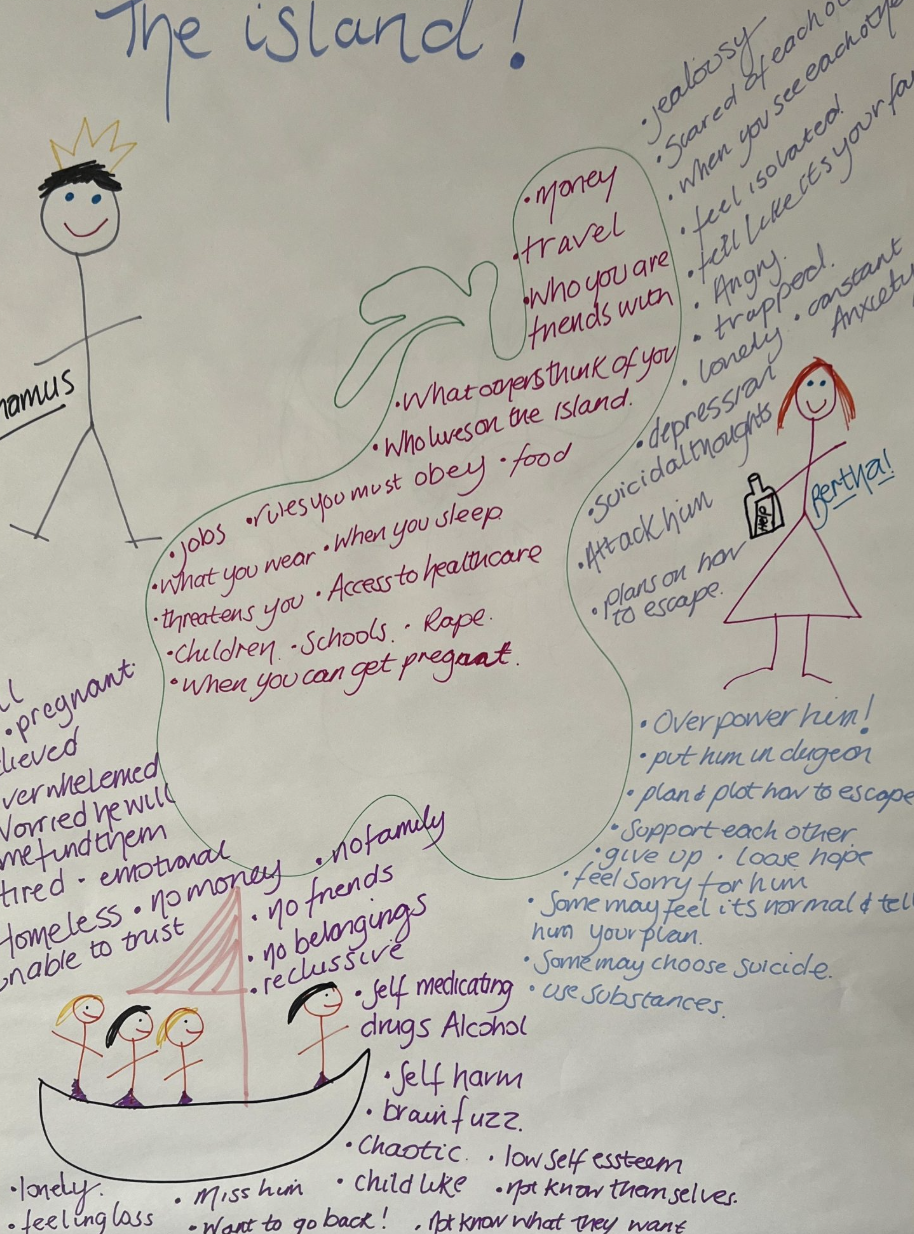 The island!
• jealousy
• Scared of each
• when you see each othe
• feel isolated!
• fell like its your fa
• Angry.
• trapped.
• lonely • constant
Anxiety
• depression
• Suicidal thoughts
• Attack him
• plans on how
to escape.
HELP
Bertha!
amus
• Money
• travel
• Who you are
friends with
• What others think of you
• Who lives on the island.
• jobs • rules you must obey • food
• What you wear • When you sleep
• threatens you • Access to healthcare
• Children • Schools. • Rape.
• When you can get pregnant.
• Overpower him!
• put him in dugeon
• plan & plot how to escape
• Support each other
• give up • loose hope
• feel sorry for him
• Some may feel its normal & tell
him your plan.
• Some may choose suicide.
• use substances.
• pregnant
lieved
verwhelemed
Worried he will
me find them
tired • emotional
Homeless • no money • no family
unable to trust
• no friends
• no belongings
• reclussive
• Self medicating
drugs Alcohol
• Self harm
• brain fuzz.
• Chaotic. • low self essteem
• lonely. • Miss him • child like • Not know themselves.
• feeling loss • Want to go back! • Not know what they want